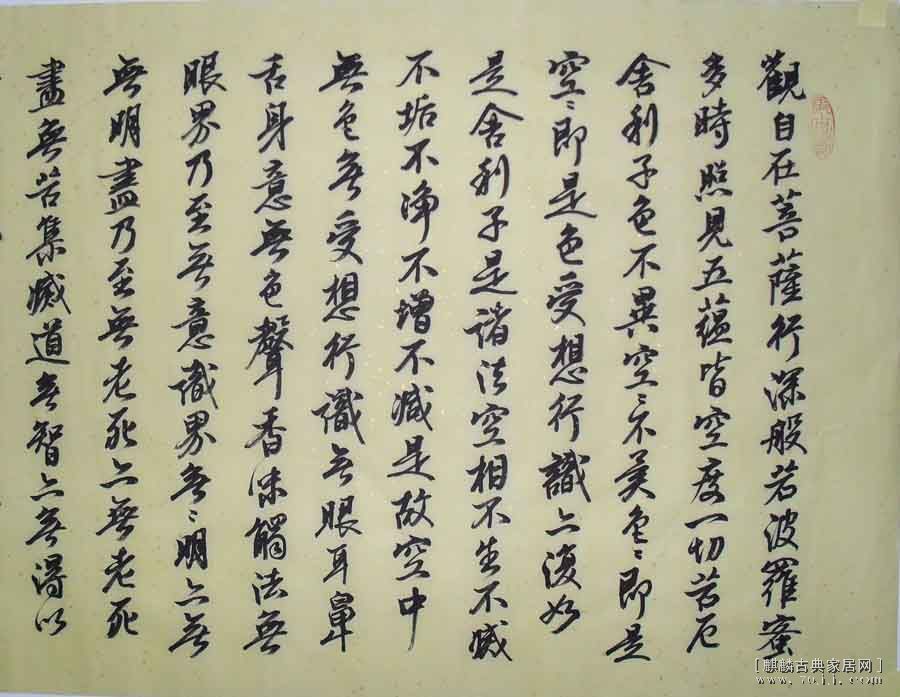 觀自在菩薩行深般若波羅蜜
多時照見五蘊皆空度一切苦厄
舍利子色不異空〻不異色〻即是
空〻即是色受想行識亦復如
是舍利子是諸法空相不生不滅
不垢不淨不增不減是故空中
無色無受想行識無眼耳鼻
舌身意無色聲香味觸法無
眼界乃至無意識界無〻明亦無
無明盡乃至無老死亦無老死
盡無苦集滅道無智亦無得以
[麒麟古典家居网]
www.7qjj.com